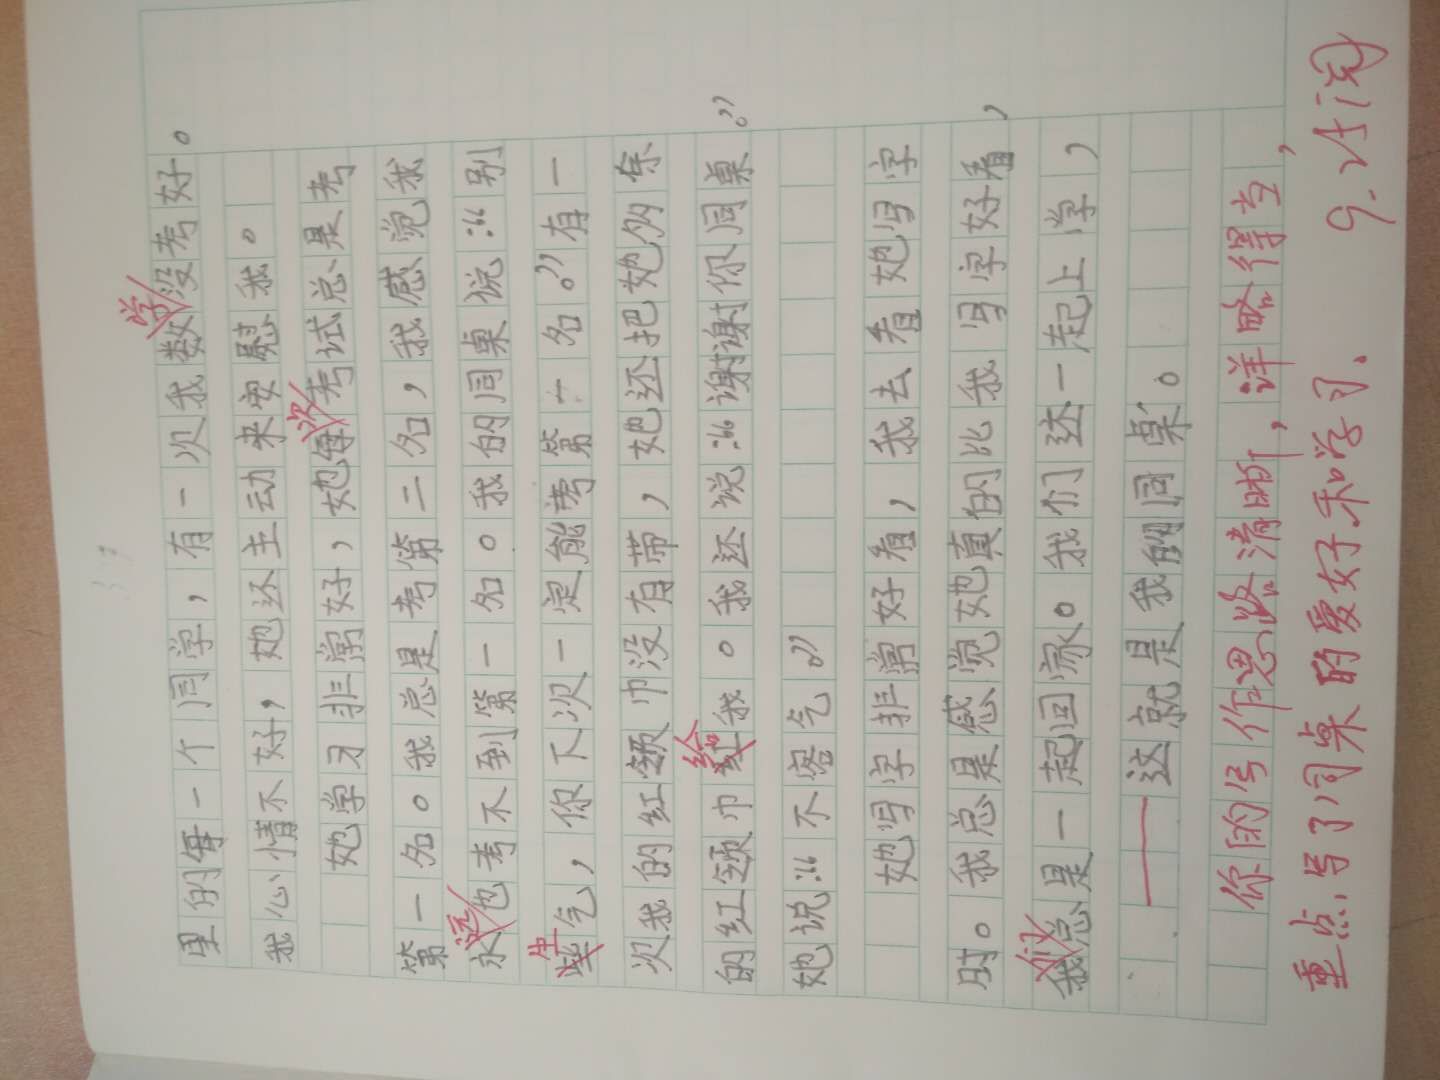 里的每一个同学，有一次我数学没考好。
我心情不好，她还主动来安慰我。
她学习非常好，她每次考试总是考
第一名。我总是考第二名，我感觉我
永远也考不到第一名。我的同桌说：“别
生气，你下次一定能考第一名。”有一
次我的红领巾没有带，她还把她多余
的红领巾给我。我还说：“谢谢你同桌。”
她说：“不客气。”
她写字非常好看，我去看她写字
时。我总是感觉她真的比我写字好看，
我们总是一起回家。我们还一起上学，
——这就是我的同桌。
你的写作思路清晰，详略得当，
重点写了同桌的爱好和学习.
9.24阅